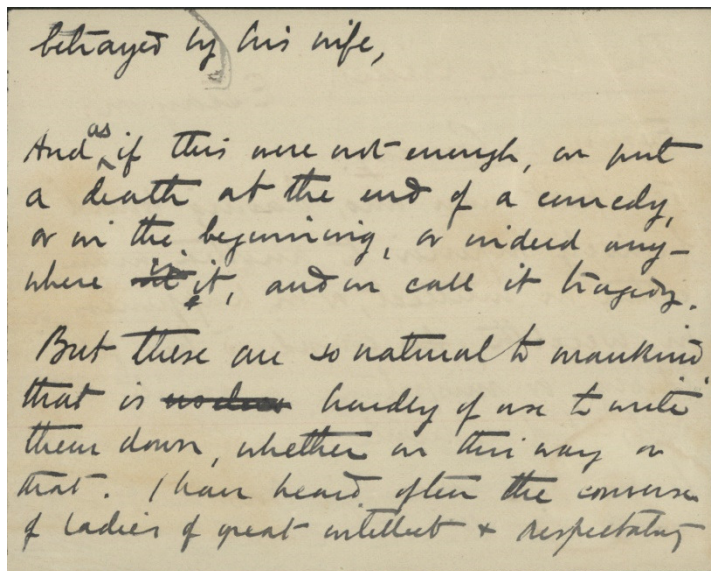 betrayed by his wife,
And as if this were not enough, we put
a death at the end of a comedy,
or in the beginning, or indeed any-
where in it, and we call it tragedy.
But these are so natural to mankind
that is hardly of use to write
them down, whether in this way or
that. I have heard often the converse
of ladies of great intellect & respectability